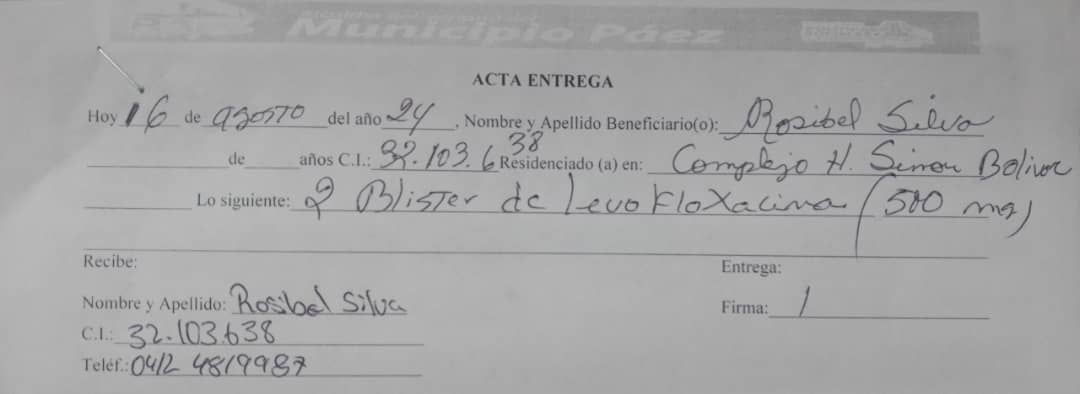 Municipio Páez
ACTA ENTREGA
Hoy 16 de agosto del año 24, Nombre y Apellido Beneficiario(o): Rosibel Silva
de años C.I.: 32.103.638 Residenciado (a) en: Complejo H. Simon Bolivar
Lo siguiente: 2 Blister de levofloxacina (500 mg)
Recibe:
Entrega:
Nombre y Apellido: Rosibel Silva
Firma:
C.I.: 32.103.638
Teléf.: 0412 4819987